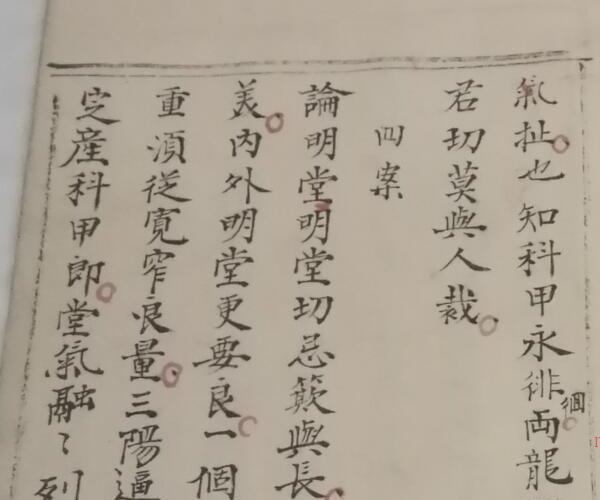 氣扯也知科甲永徘徊両龍
君切莫與人裁
四案
論明堂明堂切忌簌與長
美内外明堂更要良一個
重須從寬窄良量三陽逼
定産科甲郎堂氣融〻列